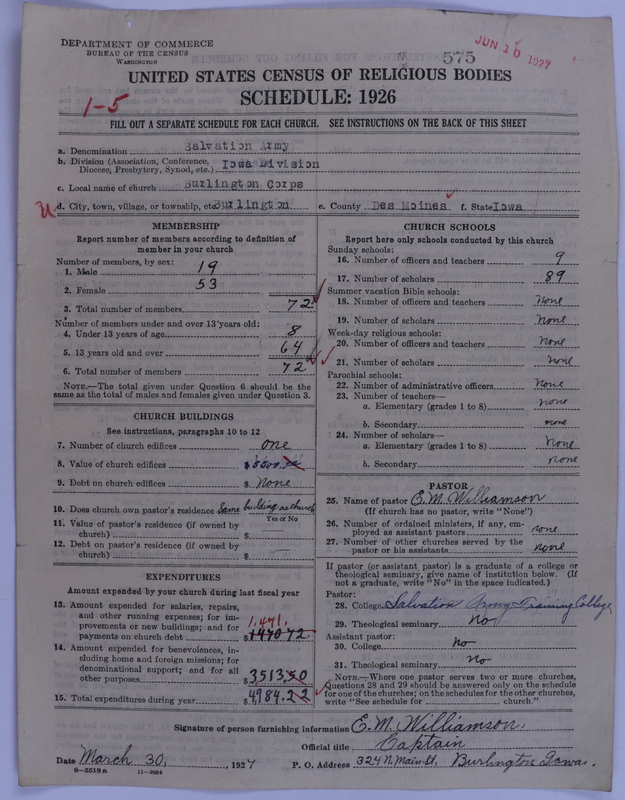 DEPARTMENT OF COMMERCE
BUREAU OF THE CENSUS
WASHINGTON
575
JUN 10 1927
UNITED STATES CENSUS OF RELIGIOUS BODIES
1-5
SCHEDULE: 1926
FILL OUT A SEPARATE SCHEDULE FOR EACH CHURCH. SEE INSTRUCTIONS ON THE BACK OF THIS SHEET
a. Denomination Salvation Army
b. Division (Association, Conference, Diocese, Presbytery, Synod, etc.) Iowa Division
c. Local name of church Burlington Corps
d. City, town, village, or township, etc. Burlington e. County Des Moines f. State Iowa
MEMBERSHIP
Report number of members according to definition of
member in your church
Number of members, by sex:
1. Male 19
2. Female 53
3. Total number of members 72
Number of members under and over 13 years old:
4. Under 13 years of age 8
5. 13 years old and over 64
6. Total number of members 72
NOTE.—The total given under Question 6 should be the
same as the total of males and females given under Question 3.
CHURCH BUILDINGS
See instructions, paragraphs 10 to 12
7. Number of church edifices one
8. Value of church edifices $5500.00
9. Debt on church edifices $ None
10. Does church own pastor's residence Same building as church
Yes or No
11. Value of pastor's residence (if owned by
church) $
12. Debt on pastor's residence (if owned by
church) $
EXPENDITURES
Amount expended by your church during last fiscal year
13. Amount expended for salaries, repairs,
and other running expenses; for im-
provements or new buildings; and for
payments on church debt $1470 72
1,471.
14. Amount expended for benevolences, in-
cluding home and foreign missions; for
denominational support; and for all
other purposes $3513,50
15. Total expenditures during year $4,984.22
CHURCH SCHOOLS
Report here only schools conducted by this church
Sunday schools:
16. Number of officers and teachers 9
17. Number of scholars 89
Summer vacation Bible schools:
18. Number of officers and teachers None
19. Number of scholars None
Week-day religious schools:
20. Number of officers and teachers None
21. Number of scholars None
Parochial schools:
22. Number of administrative officers None
23. Number of teachers—
a. Elementary (grades 1 to 8) None
b. Secondary none
24. Number of scholars—
a. Elementary (grades 1 to 8) None
b. Secondary none
PASTOR
25. Name of pastor E. M. Williamson
(If church has no pastor, write "None")
26. Number of ordained ministers, if any, em-
ployed as assistant pastors none
27. Number of other churches served by the
pastor or his assistants none
If pastor (or assistant pastor) is a graduate of a college or
theological seminary, give name of institution below. (If
not a graduate, write "No" in the space indicated.)
Pastor:
28. College Salvation Army Training College
29. Theological seminary No
Assistant pastor:
30. College No
31. Theological seminary No
NOTE.—Where one pastor serves two or more churches,
Questions 28 and 29 should be answered only on the schedule
for one of the churches; on the schedules for the other churches,
write "See schedule for church."
Signature of person furnishing information E. M. Williamson.
Official title Captain
Date March 30, 1927 P. O. Address 324 N. Main St, Burlington Iowa.
8—5518a 11—9054